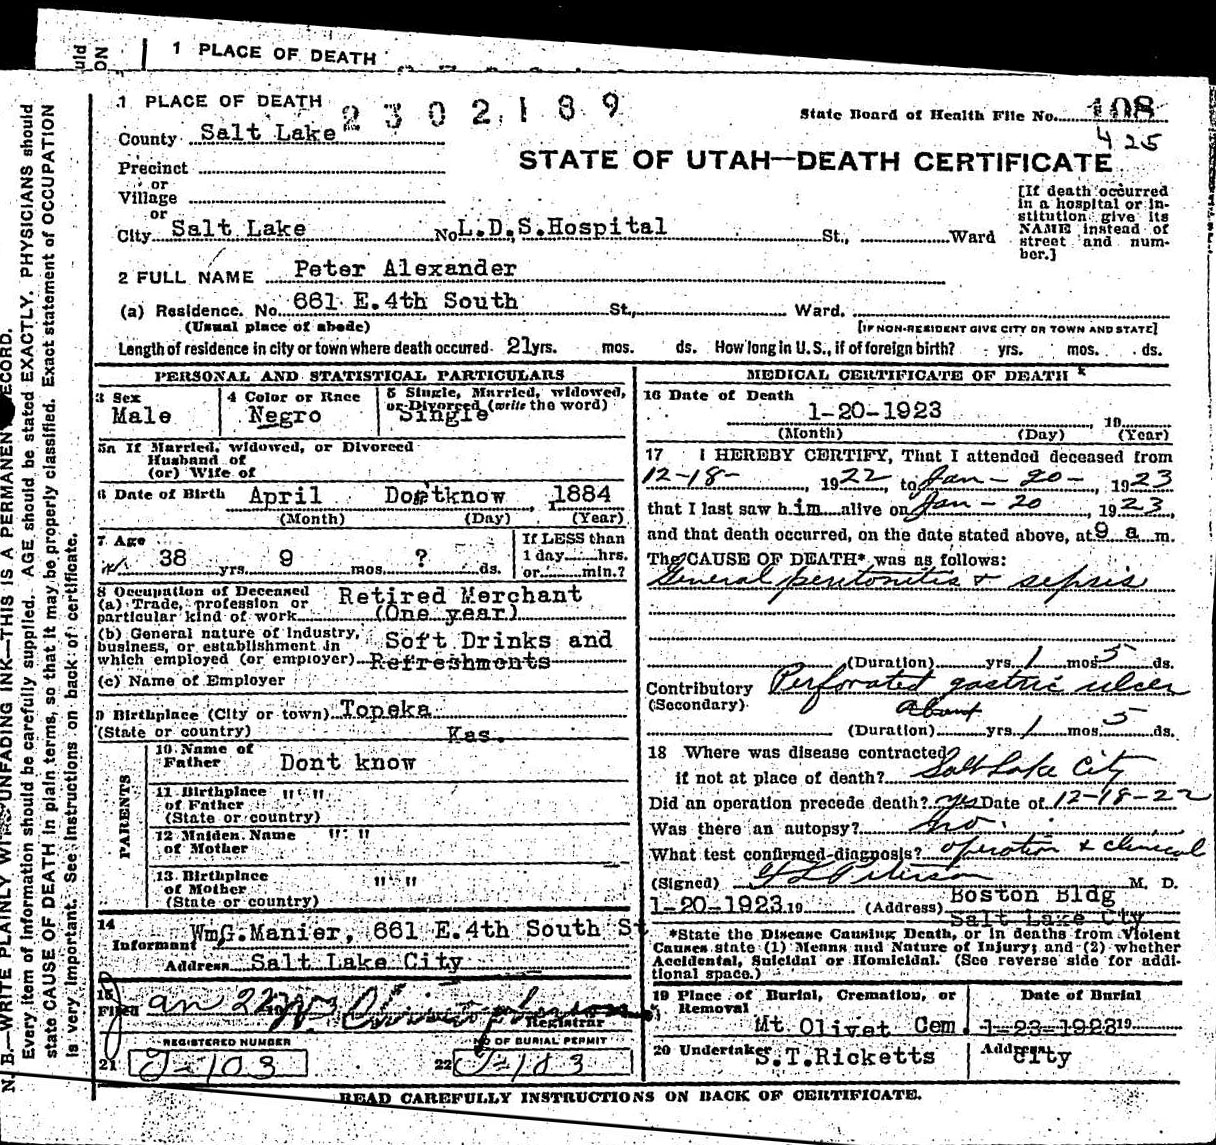 1 PLACE OF DEATH
1 PLACE OF DEATH 2 3 0 2 1 8 9
State Board of Health File No. 108
425
County Salt Lake
STATE OF UTAH—DEATH CERTIFICATE
Precinct
or
Village
or
City Salt Lake No L.D.S.Hospital St., Ward
[If death occurred
in a hospital or in-
stitution give its
NAME instead of
street and num-
ber.]
2 FULL NAME Peter Alexander
(a) Residence. No. 661 E.4th South St., Ward.
(Usual place of abode)
[IF NON-RESIDENT GIVE CITY OR TOWN AND STATE]
Length of residence in city or town where death occurred 21yrs. mos. ds. How long in U. S., if of foreign birth? yrs. mos. ds.
PERSONAL AND STATISTICAL PARTICULARS
3 Sex
Male
4 Color or Race
Negro
5 Single, Married, widowed,
or Divorced (write the word)
Single
5a If Married, widowed, or Divorced
Husband of
(or) Wife of
6 Date of Birth April Dontknow 1884
(Month) (Day) (Year)
7 Age
38 yrs. 9 mos. ? ds.
If LESS than
1 day hrs.
or min.?
8 Occupation of Deceased
(a) Trade, profession or
particular kind of work Retired Merchant
(One year)
(b) General nature of Industry,
business, or establishment in
which employed (or employer) Soft Drinks and
Refreshments
(c) Name of Employer
9 Birthplace (City or town) Topeka
(State or country) Kas.
PARENTS
10 Name of
Father Dont know
11 Birthplace " "
of Father
(State or country)
12 Maiden Name " "
of Mother
13 Birthplace
of Mother " "
(State or country)
14
Informant Wm,G.Manier, 661 E.4th South St
Address Salt Lake City
15
Filed Jan 22
Registrar
REGISTERED NUMBER
21 J-103
NO OF BURIAL PERMIT
22 J-103
MEDICAL CERTIFICATE OF DEATH
16 Date of Death
1-20-1923 19
(Month) (Day) (Year)
17 I HEREBY CERTIFY, That I attended deceased from
12-18-, 1922, to Jan-20-, 1923
that I last saw him alive on Jan-20, 1923,
and that death occurred, on the date stated above, at 9 a m.
The CAUSE OF DEATH* was as follows:
General peritonitis & sepsis
(Duration) yrs. 1 mos 5 ds.
Contributory Perforated gastric ulcer
(Secondary) about
(Duration) yrs. 1 mos. 5 ds.
18 Where was disease contracted
if not at place of death? Salt Lake City
Did an operation precede death? yes Date of 12-18-22
Was there an autopsy? no.
What test confirmed diagnosis? operation & clinical
(Signed) Peterson M. D.
1-20-1923 19 (Address) Boston Bldg
Salt Lake Cty
*State the Disease Causing Death, or in deaths from Violent
Causes state (1) Means and Nature of Injury; and (2) whether
Accidental, Suicidal or Homicidal. (See reverse side for addi-
tional space.)
19 Place of Burial, Cremation, or
Removal
Mt. Olivet Cem.
Date of Burial
1-23-1923 19
20 Undertaker
S.T.Ricketts
Address
City
READ CAREFULLY INSTRUCTIONS ON BACK OF CERTIFICATE.
N. B.—WRITE PLAINLY WITH UNFADING INK—THIS IS A PERMANENT RECORD.
Every item of information should be carefully supplied. AGE should be stated EXACTLY. PHYSICIANS should
state CAUSE OF DEATH in plain terms, so that it may be properly classified. Exact statement of OCCUPATION
is very important. See instructions on back of certificate.